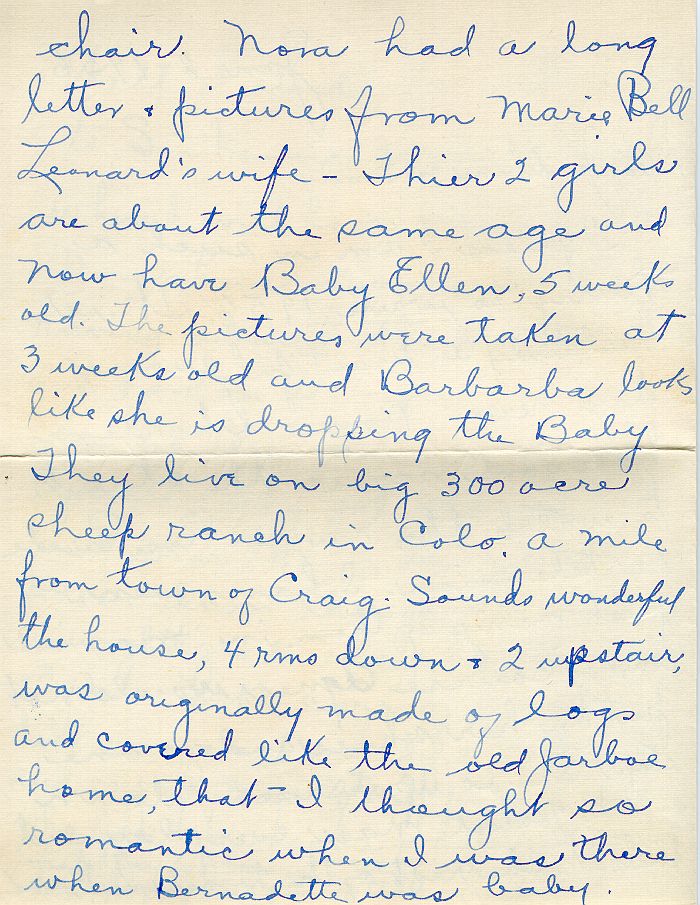 chair. Nora had a long
letter & pictures from Marie Bell
Leonard's wife - Thier 2 girls
are about the same age and
now have Baby Ellen, 5 weeks
old. The pictures were taken at
3 weeks old and Barbarba looks
like she is dropping the Baby
They live on big 300 acre
sheep ranch in Colo. a mile
from town of Craig. Sounds wonderful
the house, 4 rms down & 2 upstair,
was originally made of logs
and covered like the old Jarboe
home, that - I thought so
romantic when I was there
when Bernadette was baby.